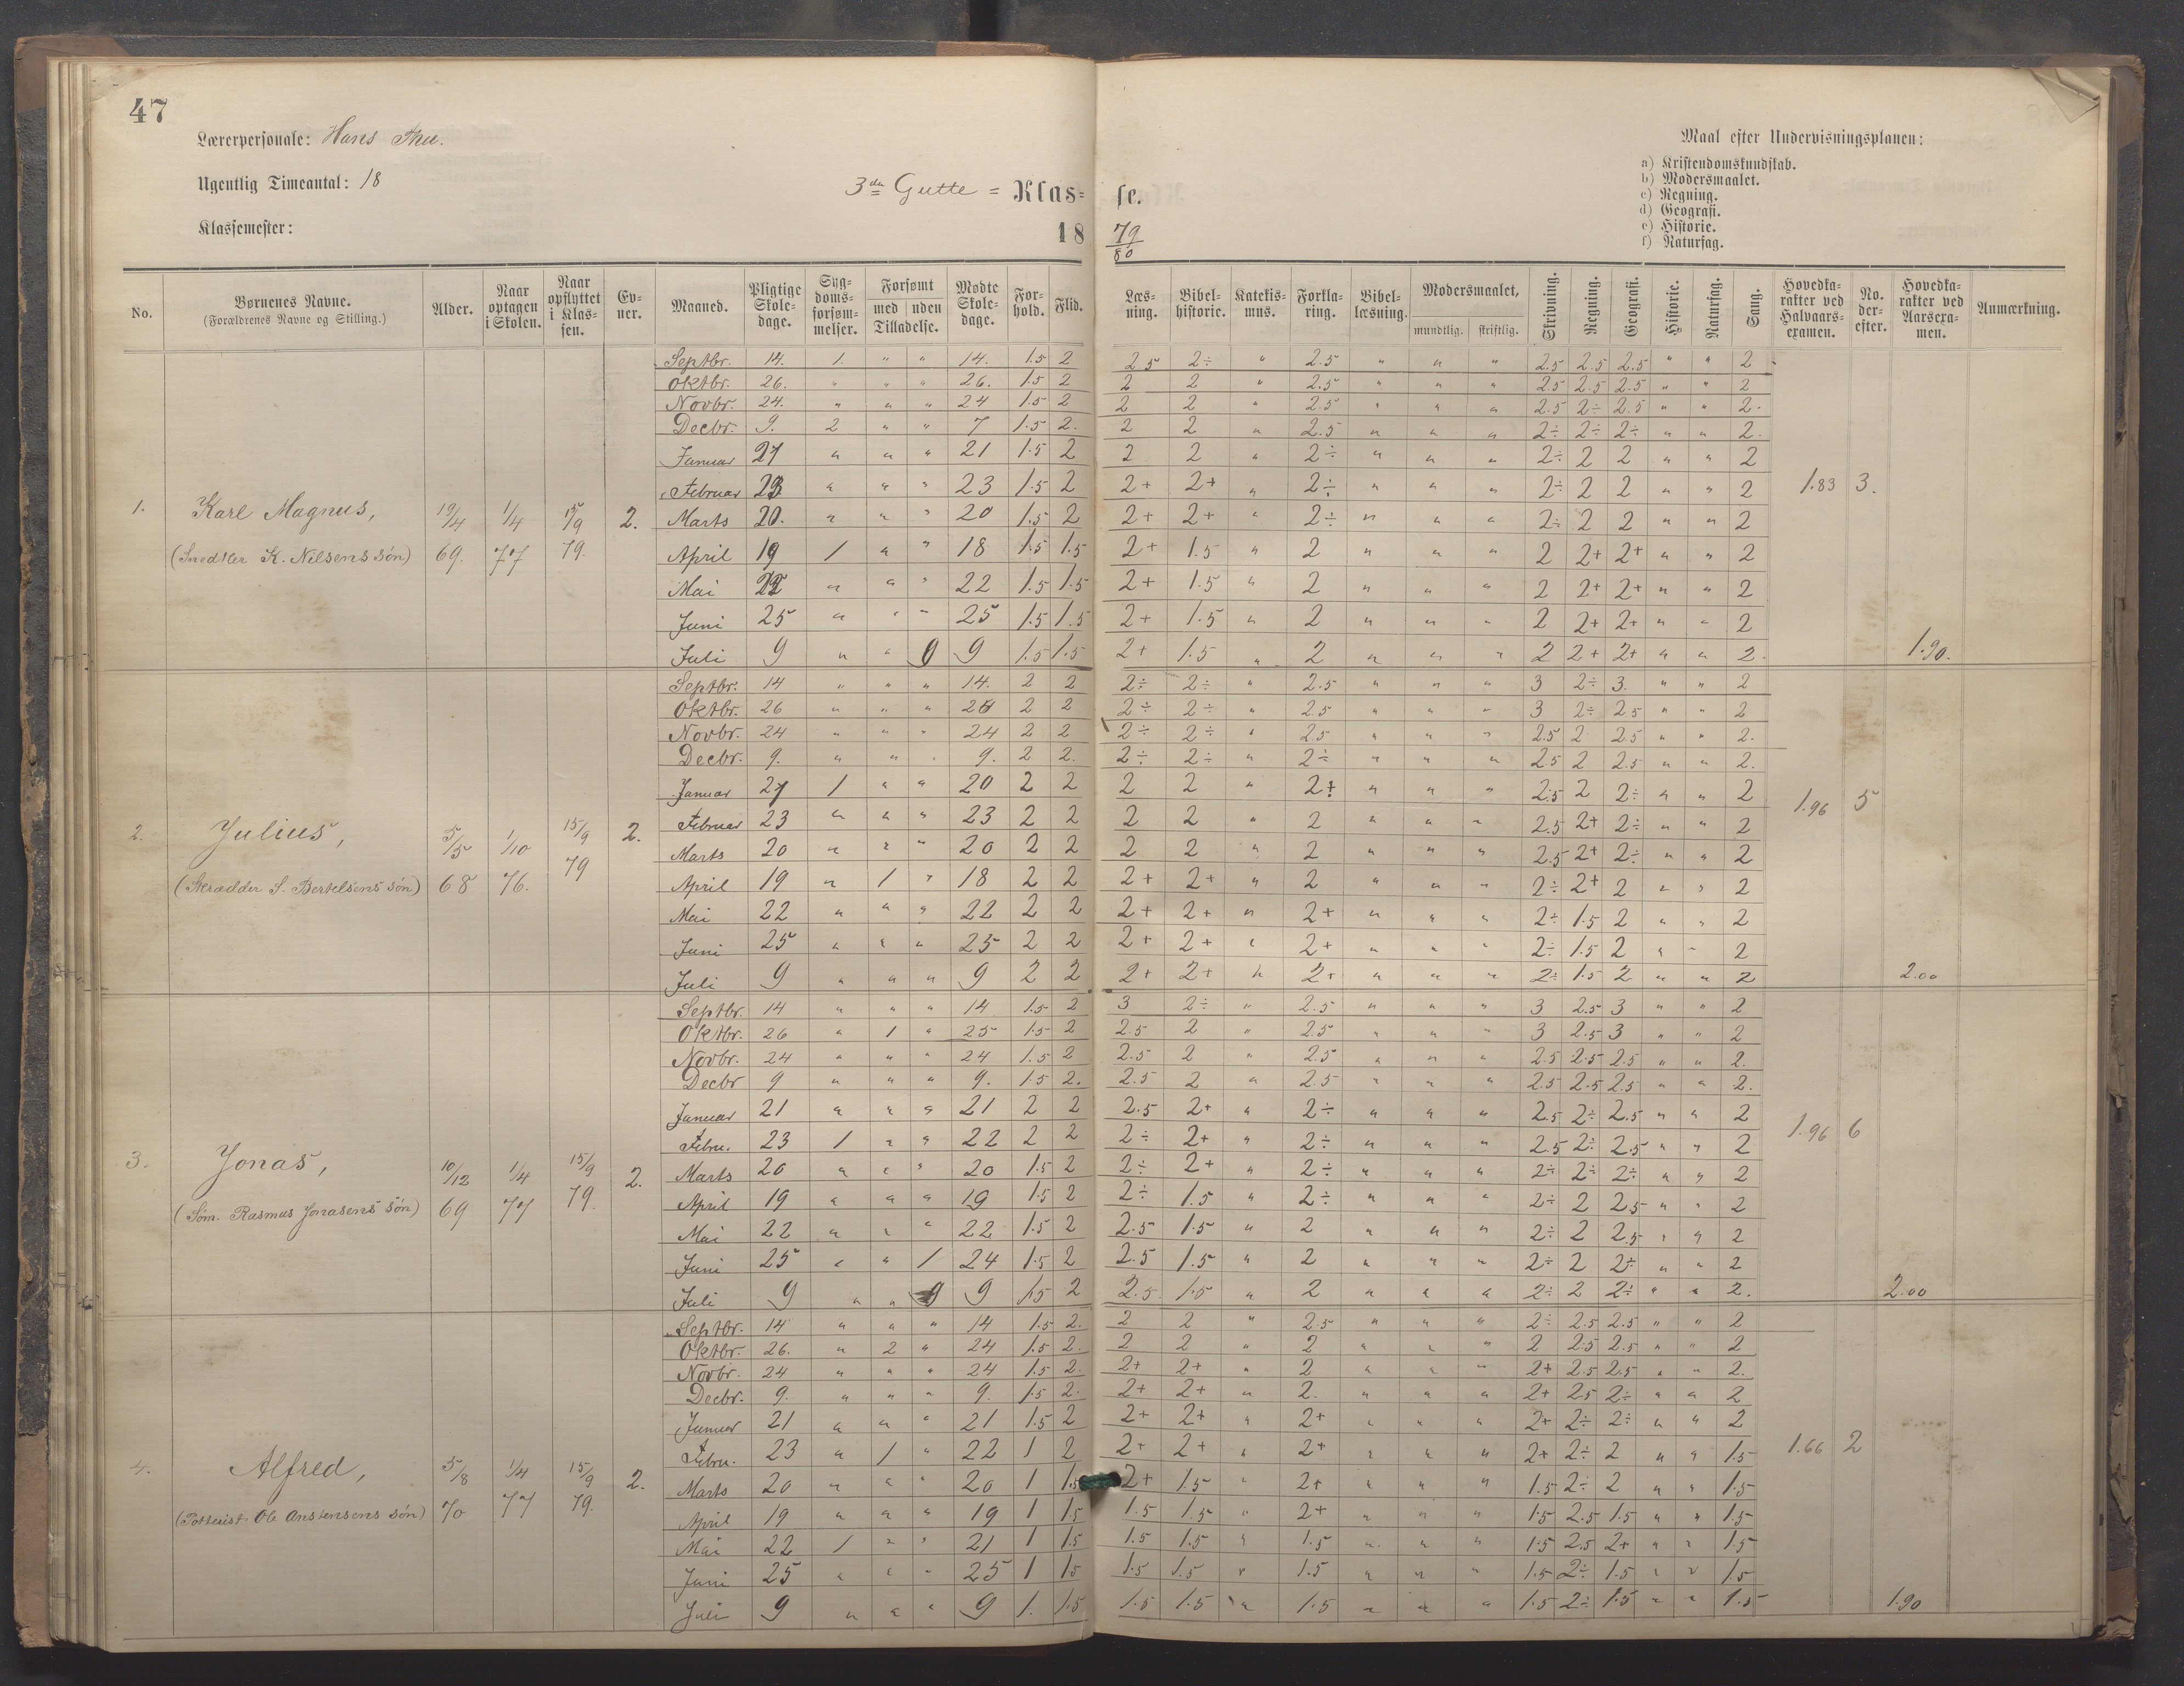 47
Lærerpersonale: Hans Thu.
Ugentlig Timeantal: 18
Klassemester:
3die Gutte = Klas=se.
1879/80
Maal efter Undervisningsplanen:
a) Kristendomskundskab.
b) Modersmaalet.
c) Regning.
d) Geografi.
e) Historie.
f) Naturfag.
No. | Børnenes Navne. (Forældrenes Navne og Stilling.) | Alder. | Naar optagen i Skolen. | Naar opflyttet i Klassen. | Evner. | Maaned. | Pligtige Skoledage. | Sygdomsforsømmelser. | Forsømt med uden Tilladelse. | Mødte Skoledage. | Forhold. | Flid. | Læsning. | Bibelhistorie. | Katekismus. | Forklaring. | Bibellæsning. | Modersmaalet, mundtlig. skriftlig. | Skrivning. | Regning. | Geografi. | Historie. | Naturfag. | Sang. | Hovedkarakter ved Halvaarsexamen. | No. derefter. | Hovedkarakter ved Aarsexamen. | Anmærkning.
1. Karl Magnus, 19/4 69. 1/4 77 15/9 79. 2.
(Snedker K. Nilsens søn)
Septbr. 14. 1. " " 14. 1.5 2 2.5 2÷ " 2.5 " " " 2.5 2.5 2.5 " " 2
Oktbr. 26. " " " 26. 1.5 2 2 2 " 2.5 " " " 2.5 2.5 2.5 " " 2
Novbr. 24. " " " 24 1.5 2 2 2 " 2.5 " " " 2.5 2÷ 2.5 " " 2.
Decbr. 9. 2 " " 7 1.5 2. 2 2 " 2.5 " " " 2÷ 2÷ 2÷ " " 2.
Januar 21 " " " 21 1.5 2 2 2 " 2÷ " " " 2÷ 2 2 " " 2
Februar 23 " " " 23 1.5 2 2+ 2+ " 2÷ " " " 2÷ 2 2 " " 2 1.83 3.
Marts 20. " " " 20 1.5 2 2+ 2+ " 2÷ " " " 2÷ 2 2 " " 2
April 19 1 " " 18 1.5 1.5 2+ 1.5 " 2 " " " 2 2+ 2+ " " 2
Mai 22 " " " 22 1.5 1.5 2+ 1.5 " 2 " " " 2 2+ 2+ " " 2
Juni 25 " " " 25 1.5 1.5 2+ 1.5 " 2 " " " 2 2+ 2+ " " 2
Juli 9 " " 9 1.5 1.5 2+ 1.5 " 2 " " " 2 2+ 2+ " " 2. 1.90.
2. Julius, 5/5 68 1/10 76. 15/9 79 2.
(Skrædder S. Bertelsens søn)
Septbr. 14 " " " 14. 2 2 2÷ 2÷ " 2.5 " " " 3 2÷ 3. " " 2
Oktbr. 26 " " " 26 2 2 2÷ 2÷ " 2.5 " " " 3 2÷ 2.5 " " 2
Novbr. 24 " " " 24 2 2 2÷ 2÷ " 2.5 " " " 2.5 2 2.5 " " 2.
Decbr. 9. " " " 9. 2 2. 2÷ 2÷ " 2÷ " " " 2.5 2 2.5 " " 2.
Januar 21 1 " " 20 2 2 2 2 " 2÷ " " " 2.5 2 2÷ " " 2
Februar 23 " " " 23 2 2 2 2 " 2 " " " 2.5 2+ 2÷ " " 2 1.96 5
Marts 20 " " " 20 2 2 2 2 " 2 " " " 2.5 2+ 2÷ " " 2
April 19 " 1 " 18 2 2 2+ 2+ " 2 " " " 2÷ 2+ 2 " " 2
Mai 22 " " " 22 2 2 2+ 2+ " 2+ " " " 2÷ 1.5 2 " " 2
Juni 25 " " " 25 2 2 2+ 2+ " 2+ " " " 2÷ 1.5 2 " " 2
Juli 9 " " " 9 2 2 2+ 2+ " 2+ " " " 2÷ 1.5 2 " " 2 2.00
3. Jonas, 10/12 69 1/4 77 15/9 79. 2.
(Søm. Rasmus Jonasens søn)
Septbr. 14 " " " 14 1.5 2 3 2÷ " 2.5 " " " 3 2.5 3 " " 2
Oktbr. 26 " 1 " 25 1.5 2 2.5 2 " 2.5 " " " 3 2.5 3 " " 2
Novbr. 24 " " " 24 1.5 2 2.5 2 " 2.5 " " " 2.5 2.5 2.5 " " 2.
Decbr 9 " " " 9. 1.5 2. 2.5 2 " 2.5 " " " 2.5 2.5 2.5 " " 2.
Januar 21 " " " 21 2 2 2.5 2+ " 2÷ " " " 2.5 2÷ 2.5 " " 2
Febru. 23 1 " " 22 2 2 2÷ 2+ " 2÷ " " " 2.5 2÷ 2.5 " " 2 1.96 6
Marts 20 " " " 20 1.5 2 2÷ 2+ " 2÷ " " " 2÷ 2÷ 2÷ " " 2
April 19 " " " 19 1.5 2 2÷ 1.5 " 2÷ " " " 2÷ 2 2.5 " " 2
Mai 22 " " " 22 1.5 2 2.5 1.5 " 2 " " " 2÷ 2 2.5 " " 2
Juni 25 " " 1 24 1.5 2 2.5 1.5 " 2 " " " 2÷ 2 2÷ " " 2
Juli 9 " " 9 1.5 2 2.5 1.5 " 2 " " " 2÷ 2 2÷ " " 2. 2.00
4. Alfred, 5/8 70 1/4 77 15/9 79. 2.
(Ole søn)
Septbr. 14 " " " 14 1.5 2. 2 2 " 2.5 " " " 2÷ 2.5 2.5 " " 2
Oktbr. 26. " 2 " 24 1.5 2. 2 2 " 2 " " " 2 2.5 2.5 " " 2
Novbr. 24 " " " 24 1.5 2. 2+ 2+ " 2 " " " 2+ 2.5 2.5 " " 2.
Decbr. 9. " " " 9. 1.5 2. 2+ 2+ " 2. " " " 2+ 2.5 2÷ " " 2
Januar 21 " " " 21 1.5 2 2+ 2+ " 2+ " " " 2+ 2÷ 2÷ " " 2
Febru. 23 " 1 " 22 1 2 2+ 2+ " 2+ " " " 2+ 2÷ 2 " " 1.5 1.66 2
Marts 20 " " " 20 1 1.5 2+ 1.5 " 2+ " " " 1.5 2÷ 2 " " 1.5
April 19 " " " 19 1 1.5 1.5 1.5 " 2+ " " " 1.5 2.5 1.5 " " 1.5
Mai 22 1 " " 21 1 1.5 1.5 1.5 " 1.5 " " " 1.5 2.5 2+ " " 1.5
Juni 25 " " " 25 1 1.5 1.5 1.5 " 1.5 " " " 1.5 2÷ 1.5 " " 1.5
Juli 9 " " " 9 1. 1.5 1.5 1.5 " 1.5 " " " 1.5 2÷ 1.5 " " 1.5 1.90